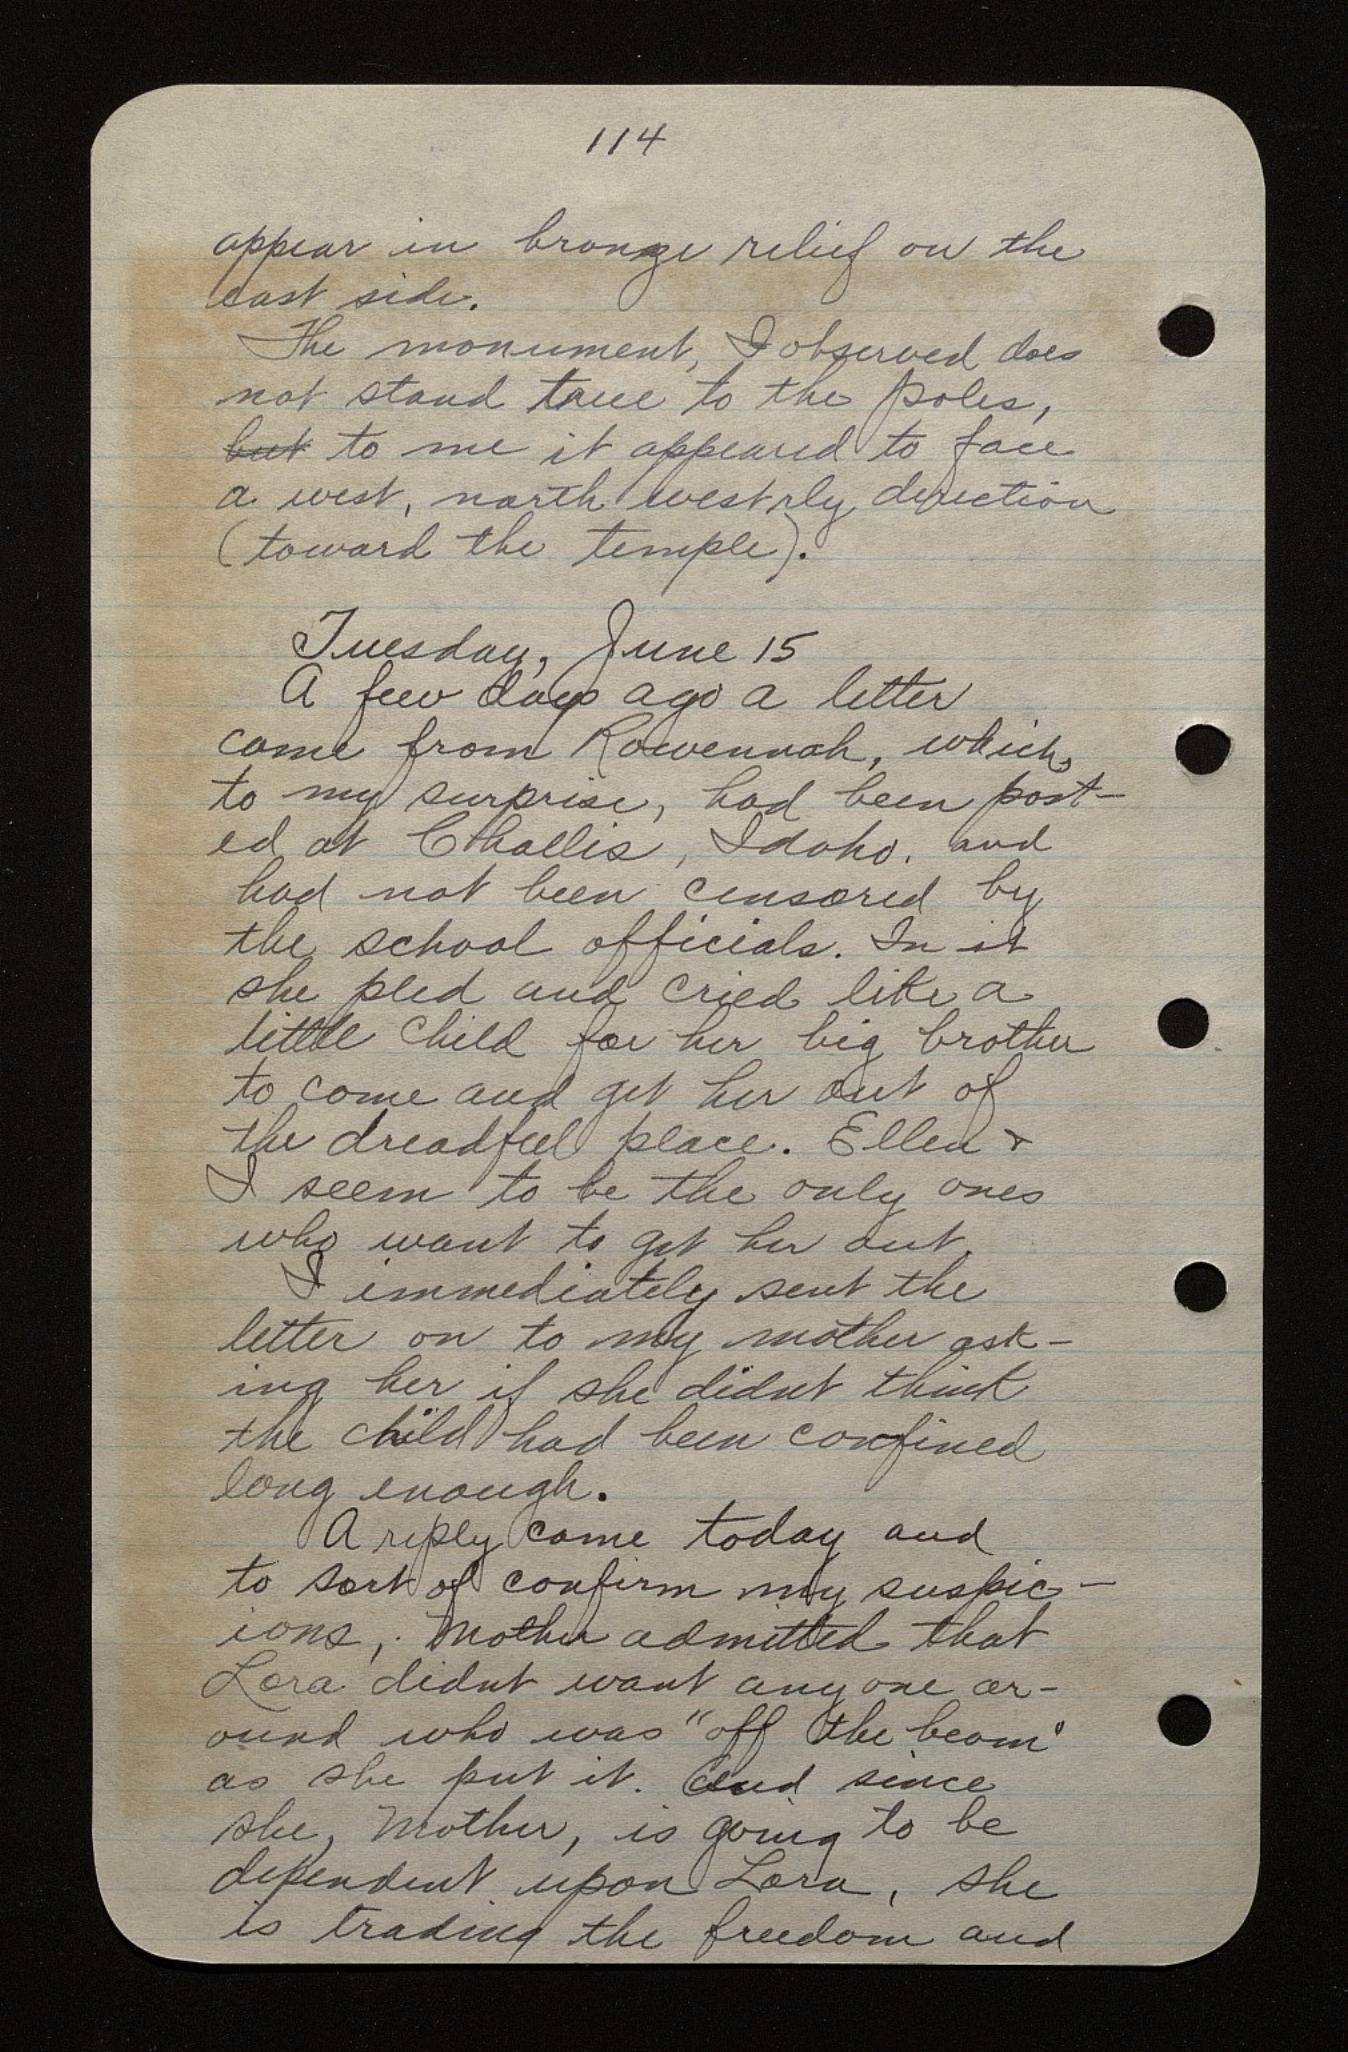 114
appear in bronze relief on the
east side.
The monument, I observed does
not stand true to the poles,
but to me it appeared to face
a west, north westrly direction
(toward the temple).
Tuesday, June 15
A few days ago a letter
came from Rowennah, which,
to my surprise, had been post-
ed at Challis, Idaho, and
had not been censored by
the school officials. In it
she pled and cried like a
little child for her big brother
to come and get her out of
the dreadful place. Ellen &
I seem to be the only ones
who want to get her out.
I immediately sent the
letter on to my mother ask-
ing her if she didnt think
the child had been confined
long enough.
A reply came today and
to sort of confirm my suspic-
ions, Mother admitted that
Lora didnt want anyone ar-
ound who was "off the beam"
as she put it. And since
she, Mother, is going to be
dependent upon Lora, she
is trading the freedom and